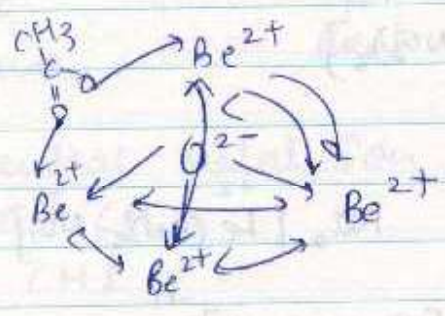 CH3
C O Be2+
O
O2-
Be2+ Be2+
Be2+